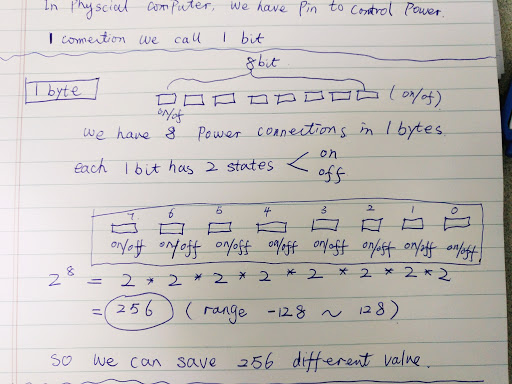 In Physcial computer, we have Pin to control Power.
1 connection we call 1 bit
8bit
1 byte
(on/of)
on/of
we have 8 Power connections in 1 bytes.
each 1 bit has 2 states < on
off
7 6 5 4 3 2 1 0
on/off on/off on/off on/off on/off on/off on/off on/off
2⁸ = 2 * 2 * 2 * 2 * 2 * 2 * 2 * 2
= 256 ( range -128 ~ 128)
so we can save 256 different value.